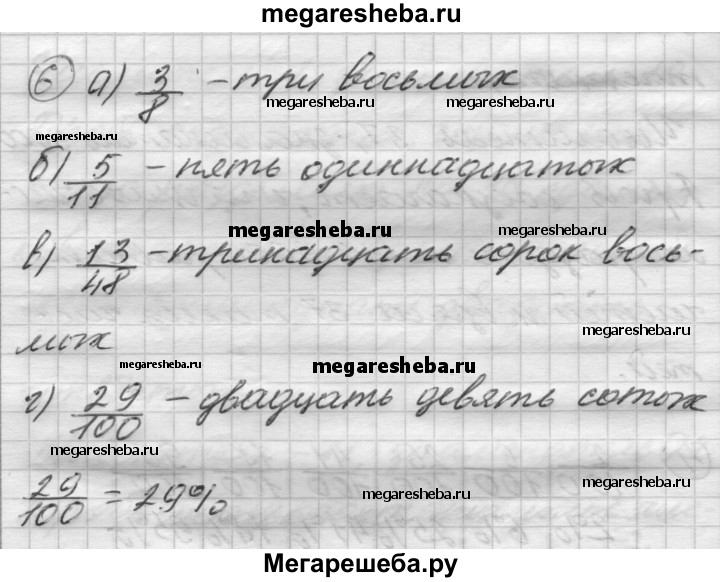 megaresheba.ru
6 а) 3/8 - три восьмых
megaresheba.ru megaresheba.ru
megaresheba.ru
б) 5/11 - пять одиннадцатых
megaresheba.ru megaresheba.ru
в) 13/48 - тринадцать сорок вось-
megaresheba.ru
мых
megaresheba.ru megaresheba.ru
г) 29/100 - двадцать девять сотых
megaresheba.ru
29/100 = 29%
megaresheba.ru megaresheba.ru
Мегарешеба.ру